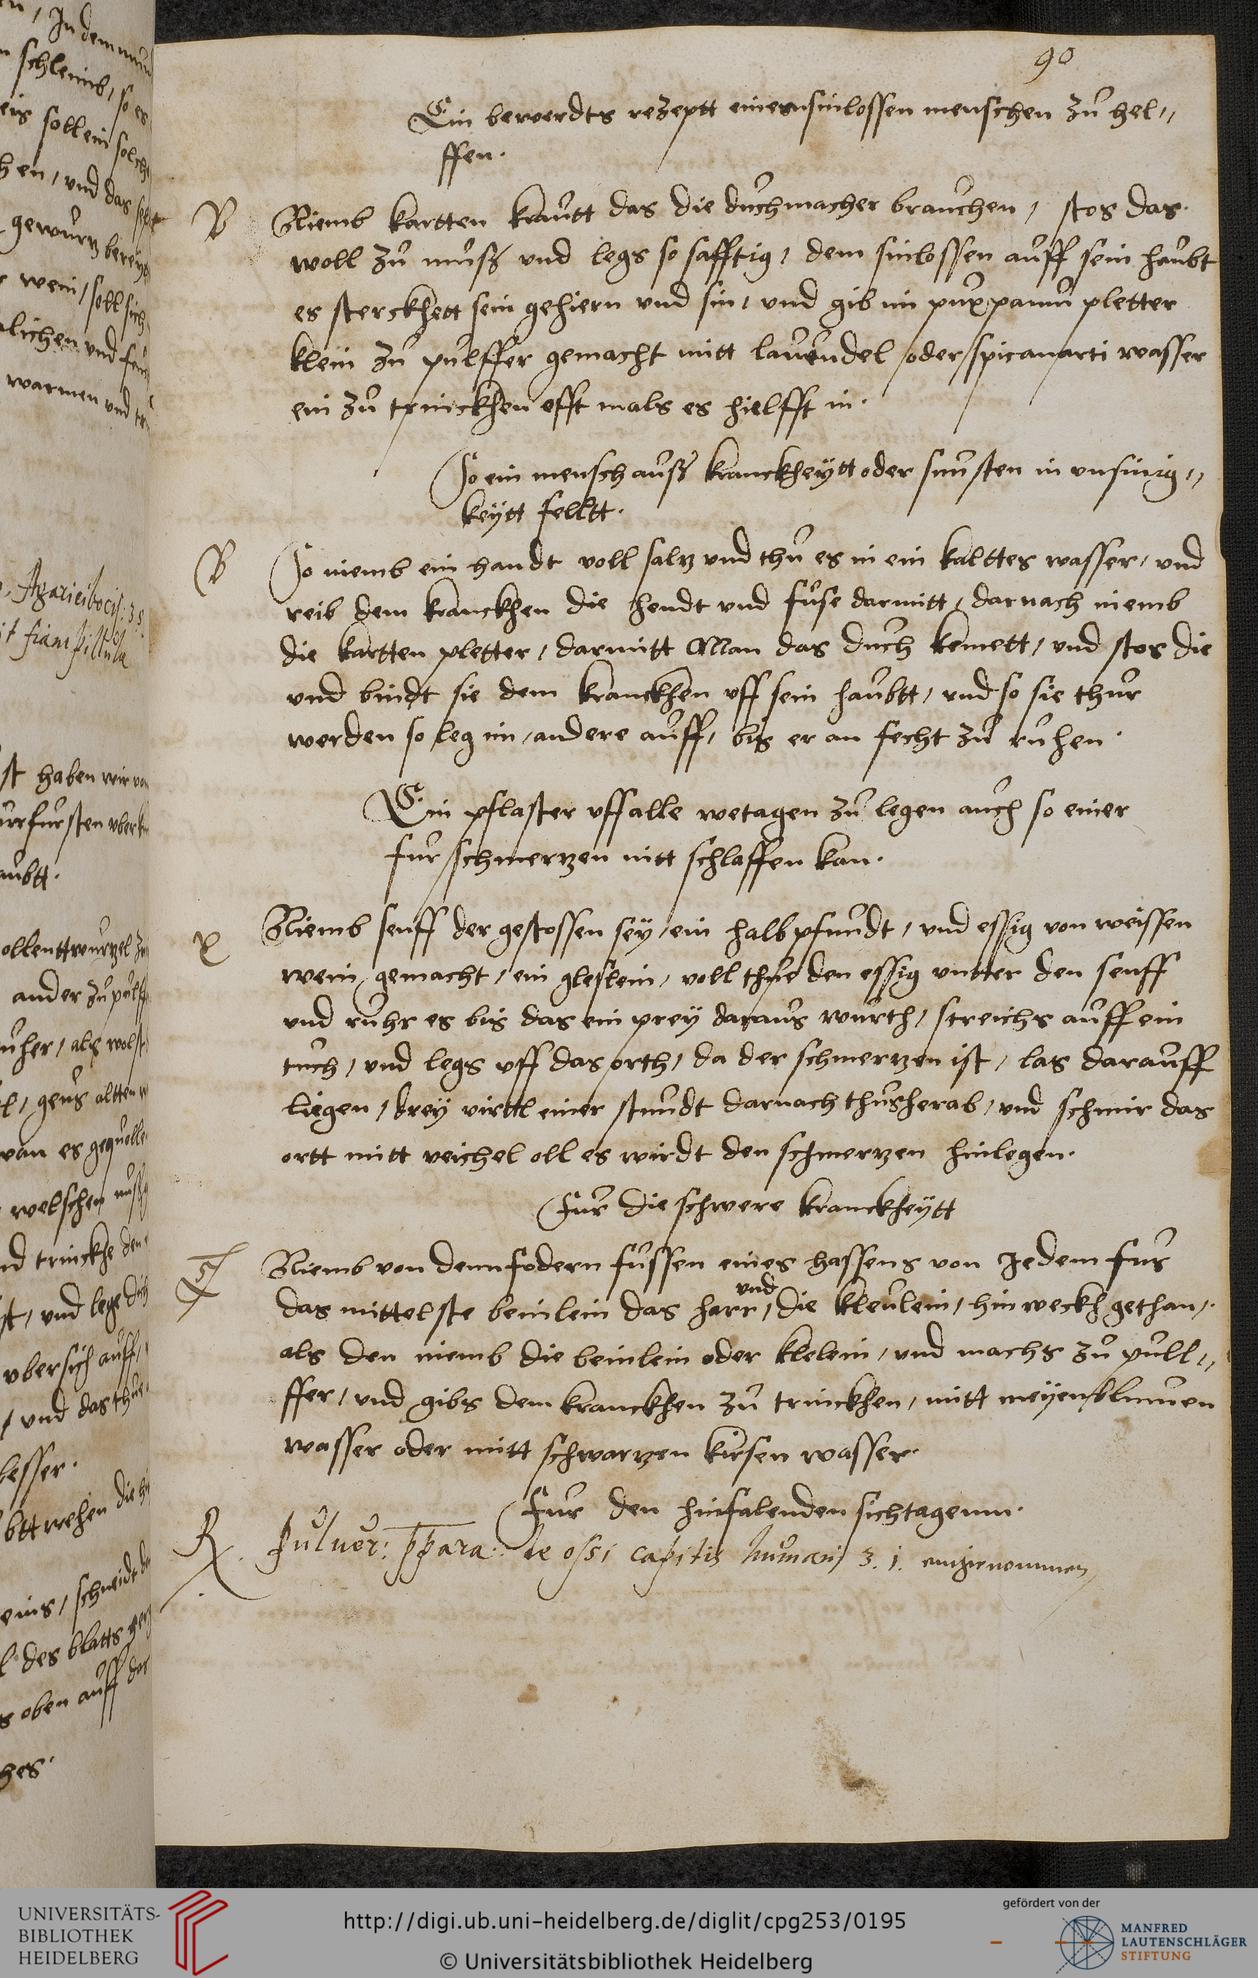 90
Ein bewerdts rezeptt eines sinlossen menschen zu hel„
ffen.
Niemb kartten krautt das die duchmacher brauchen / stos das
woll zu muß und legs so safftig / dem sinlossen auff sein haubt
es sterckhett sein gehiern und sin / und gib im puxpaumu pletter
klein zu pulffer gemacht mitt lauendel oder spicanarti wasser
ein zu trinckhen offt mals es hielfft in.
So ein mensch auß kranckheytt oder sunsten in unsinig„
keytt felltt.
So niemb ein handt voll saltz und thu es in ein kalttes wasser / und
reib dem kranckhen die hendt und fuse darmitt / darnach niemb
die kartten pletter / darmitt Man das duch kemett / und stos die
und bindt sie dem kranckhen uff sein haubtt / und so sie thur
werden so leg im / andere auff / bis er an fecht zu ruhen.
Ein pflaster uff alle wetagen zu legen auch so einer
fur schmertzen nitt schlaffen kan.
Niemb senff der gestossen sey / ein halb pfundt / und essig von weissen
wein / gemacht / ein gleslein / voll thue den essig untter den senff
und ruhr es bis das ein prey daraus wurth / streichs auff ein
tuch / und legs uff das orth / da der schmertzen ist / las darauff
liegen / drey virttl einer stundt darnach thus herab / und schmir das
ortt mitt veichel oll es wirdt den schmertzen hinlegen.
Fur die schwere kranckheytt
Niemb von denn fodern fussen eines hassens von Jedem fus
das mittelste beinlein das harr / und die kleulein / hin weckh gethan /
als den niemb die beinlein oder klelein / und machs zu pull„
ffer / und gibs dem kranckhen zu trinckhen / mitt meyenblumen
wasser oder mitt schwartzen kirsen wasser.
Fur den hinfalenden sichtagenn.
Puluer: ppara: de ossi capitis humani ʒ. j. eingenommen
http://digi.ub.uni-heidelberg.de/diglit/cpg253/0195
© Universitätsbibliothek Heidelberg
UNIVERSITÄTS-
BIBLIOTHEK
HEIDELBERG
gefördert von der
MANFRED
LAUTENSCHLÄGER
STIFTUNG